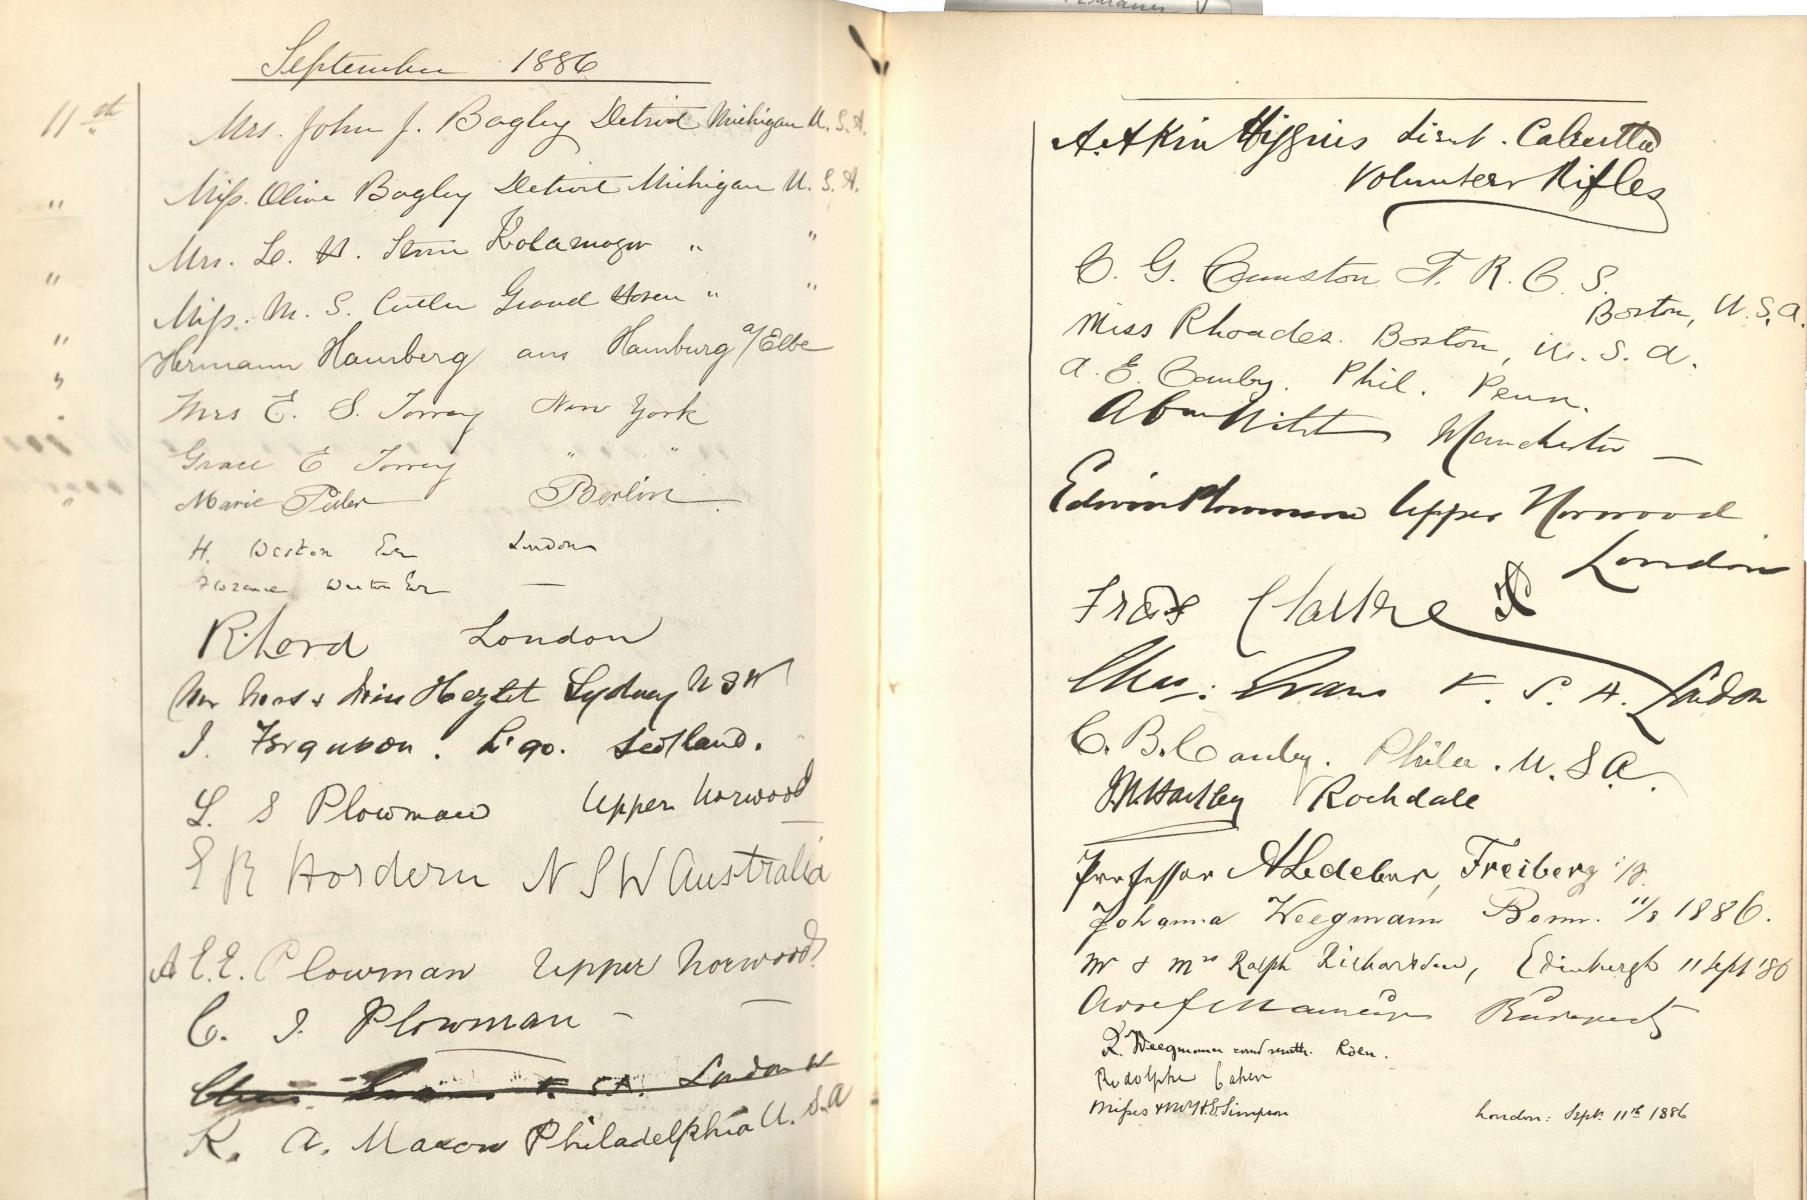 September 1886
11th
Mrs. John J. Bagley Detroit Michigan U. S. A.
" Miss. Olive Bagley Detroit Michigan U. S. A.
Mrs. L. H. Stone Kalamazoo " "
" Miss. M. S. Cutler Grand Haven " "
" Hermann Hamberg aus Hamburg a/Elbe
" Mrs E. S. Torrey New York
Grace E Torrey " "
" Marie Berlin
H. Weston London
Florence Weston —
R. Lord London
Mr Mrs & Miss Sydney N S W
J. Ferguson. Scotland.
L. S Plowman Upper Norwood
E R Hordern N S W Australia
A E. E. Plowman Upper Norwood
C. J. Plowman — —
London W
R. A. Maxon Philadelphia U. S. A
A. Atkin Higgins Lieut. Calcutta
Volunteer Rifles
C. G. Cumston F. R. C. S.
Boston, U. S. A.
Miss Rhoades. Boston, U. S. A.
A. E. Canby. Phil. Penn.
Manchester —
Edwin Plowman Upper Norwood
London
Clarke
Chas. Evans F. S. A. London
C. B. Canby. Phila. U. S. A.
Hartley Rochdale
Professor A Ledebur, Freiberg i/S.
Johanna Weegmann Bonn. 11/9 1886.
Mr & Mrs Ralph Richardson, Edinburgh 11 Sept '86
Budapest
Weegmann cand math. Köln.
Rodolphe Cahen
Misses & Mr Simpson London: Sept. 11th 1886